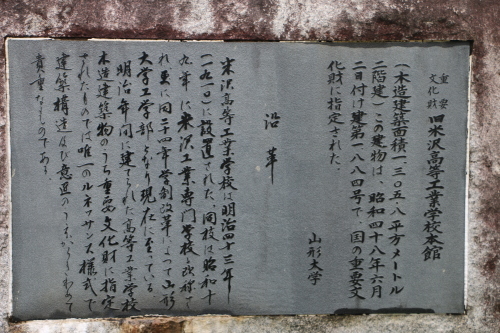 重要文化財 旧米沢高等工業学校本館
(木造建築面積一三〇五・八平方メートル
二階建)この建物は、昭和四十八年六月
二日付け建第一八八四号で、国の重要文
化財に指定された。
山形大学
沿革
米沢高等工業学校は明治四十三年
(一九一〇)に設置された、同校は昭和十
九年に米沢工業専門学校と改称さ
れ更に同二十四年学制改革によって山形
大学工学部となり現在に至っている
明治年間に建てられた高等工業学校
木造建築物のうち重要文化財に指定
されたものでは唯一のルネッサンス様式で
建築構造及び意匠のうえからきわめて
貴重なものである。